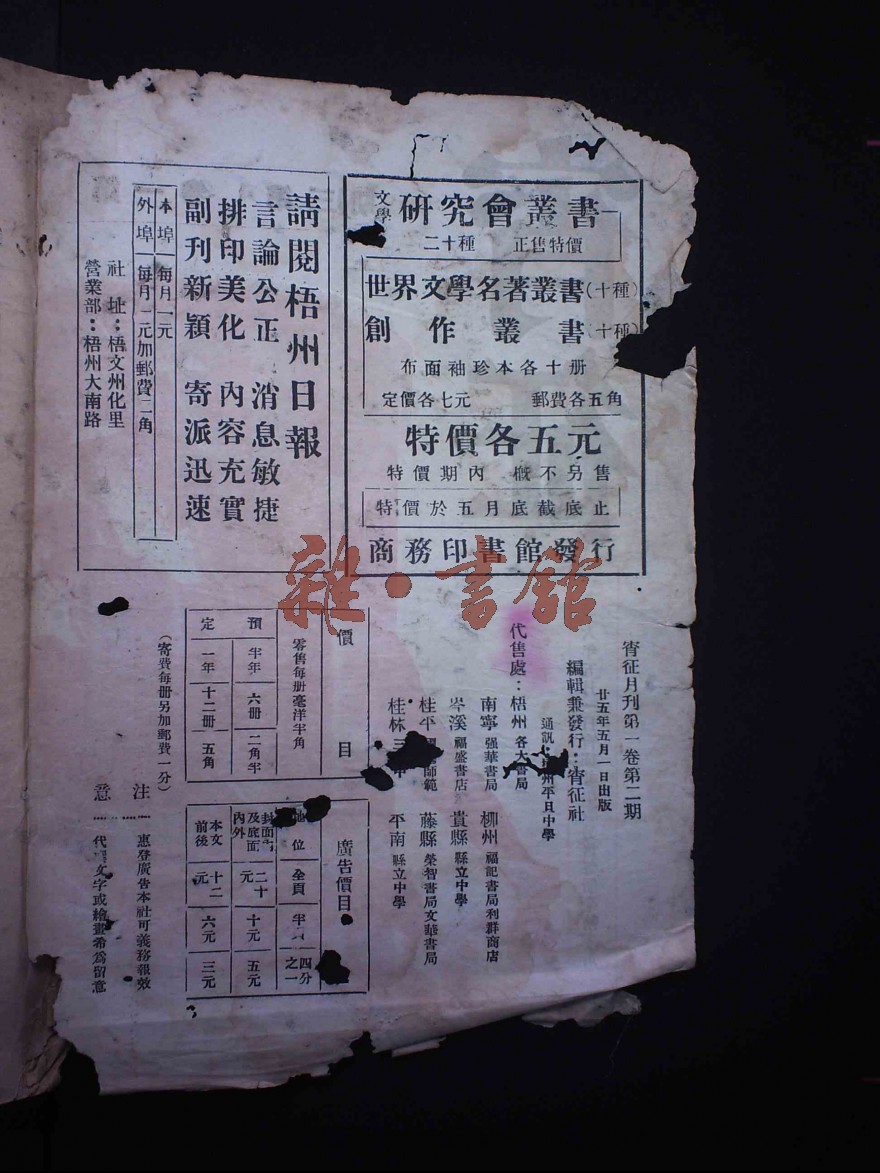 文學研究會叢書
二十種 正售特價
世界文學名著叢書(十種)
創作叢書(十種)
布面袖珍本各十册
定價各七元 郵費各五角
特價各五元
特價期內 概不另售
特價於五月底截底止
商務印書館發行
請閱梧州日報
言論公正 消息敏捷
排印美化 內容充實
副刊新穎 寄派迅速
本埠每月一元
外埠每月一元加郵費二角
社址:梧文州化里
營業部:梧州大南路
雜·書館
宵征月刊第一卷第二期
廿五年五月一日出版
編輯兼發行:宵征社
通訊: 州平旦中學
代售處:梧州各大書局
南寧强華書局 柳州福記書局利群商店
岑溪福盛書店 貴縣縣立中學
桂平 師範 藤縣榮智書局文華書局
桂林三 平南縣立中學
價目
零售每册毫洋半角
預 半年 六册 二角半
定 一年 十二册 五角
(寄費每册另加郵費一分)
廣告價目
地位 全頁 半 四分之一
封面 及底面內外 二十元 十元 五元
本文前後 十二元 六元 三元
注 惠登廣告本社可義務報效
意 代 文字或繪畫希爲留意